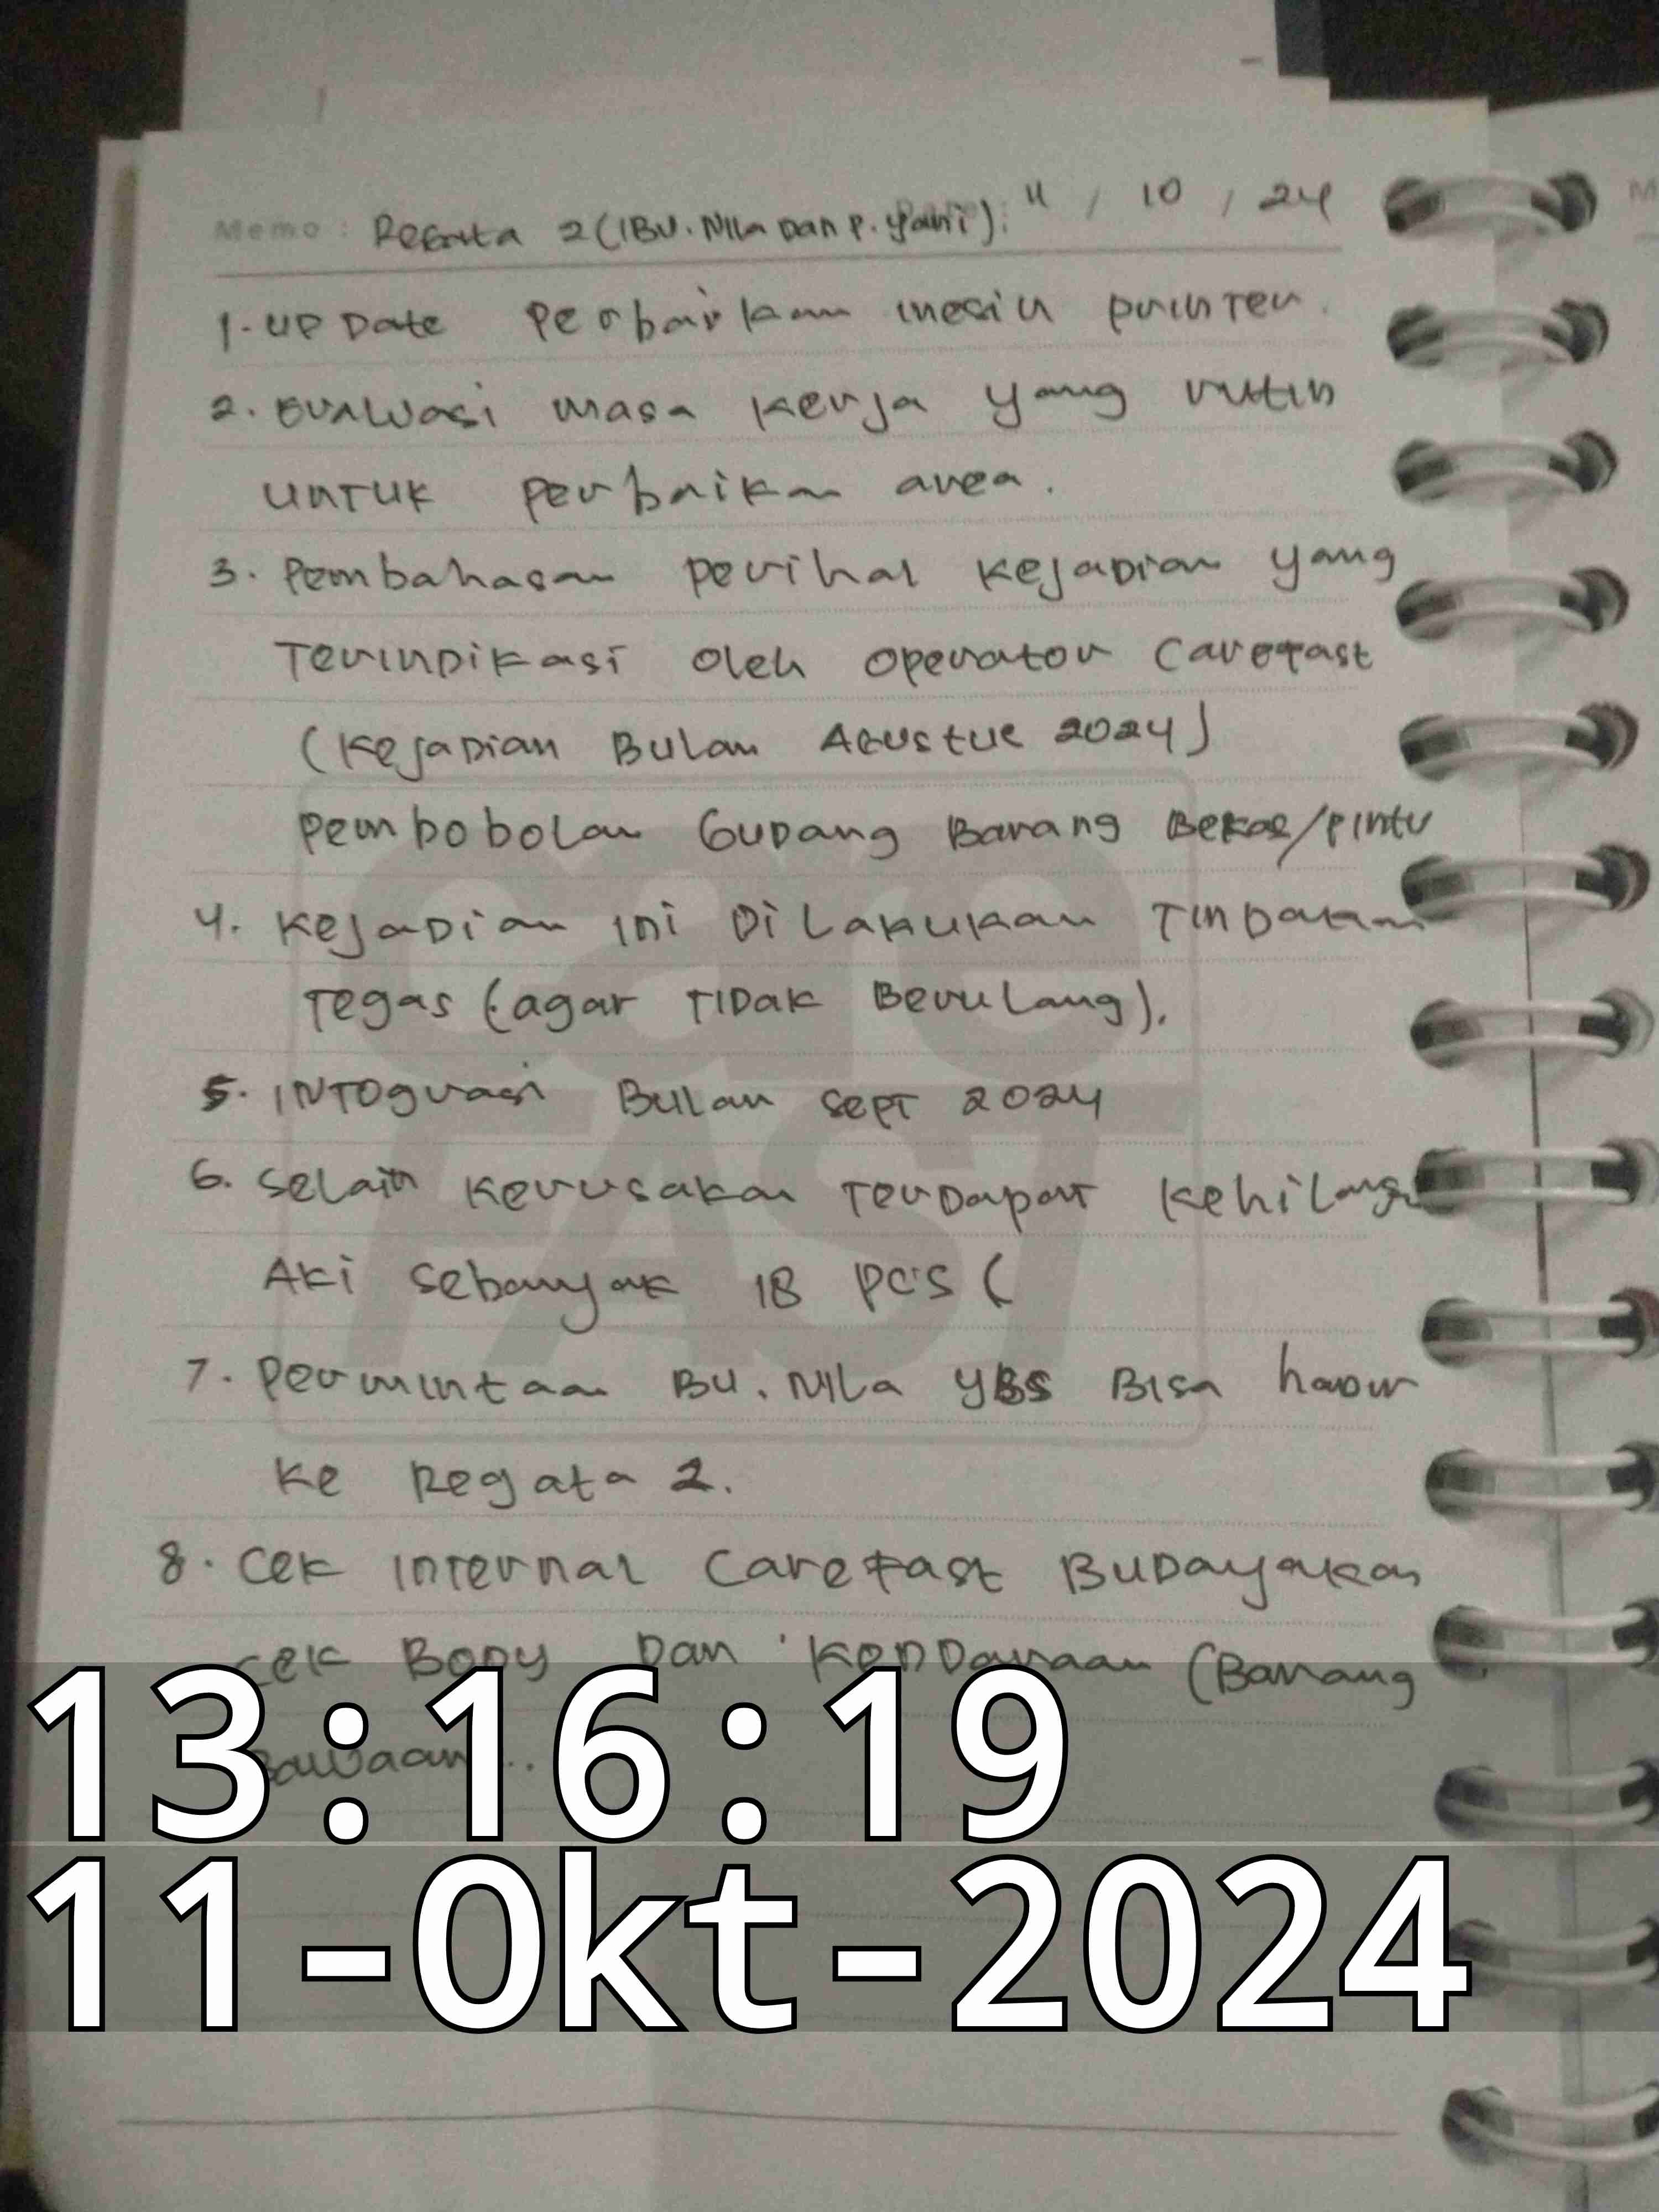 Memo : Regata 2 (IBU. Nila Dan P. Yani). 11 / 10 / 24
1. UP Date Perbaikan mesin printer.
2. Evaluasi masa kerja yang rutin
untuk perbaikan area.
3. Pembahasan perihal kejadian yang
Terindikasi oleh operator Carefast
(Kejadian Bulan Agustus 2024)
Pembobolan Gudang Barang Bekas/pintu
4. Kejadian ini Dilakukan Tindakan
Tegas (agar Tidak Berulang).
5. INTOgrasi Bulan Sept 2024
6. Selain Kerusakan Terdapat Kehilangan
Aki sebanyak 18 pcs (
7. Permintaan Bu. Nila YBS Bisa hadir
ke Regata 2.
8. Cek Internal Carefast Budayakan
cek Body Dan Kendaraan (Barang
Bawaan..
care
FAST
13:16:19
11-Okt-2024